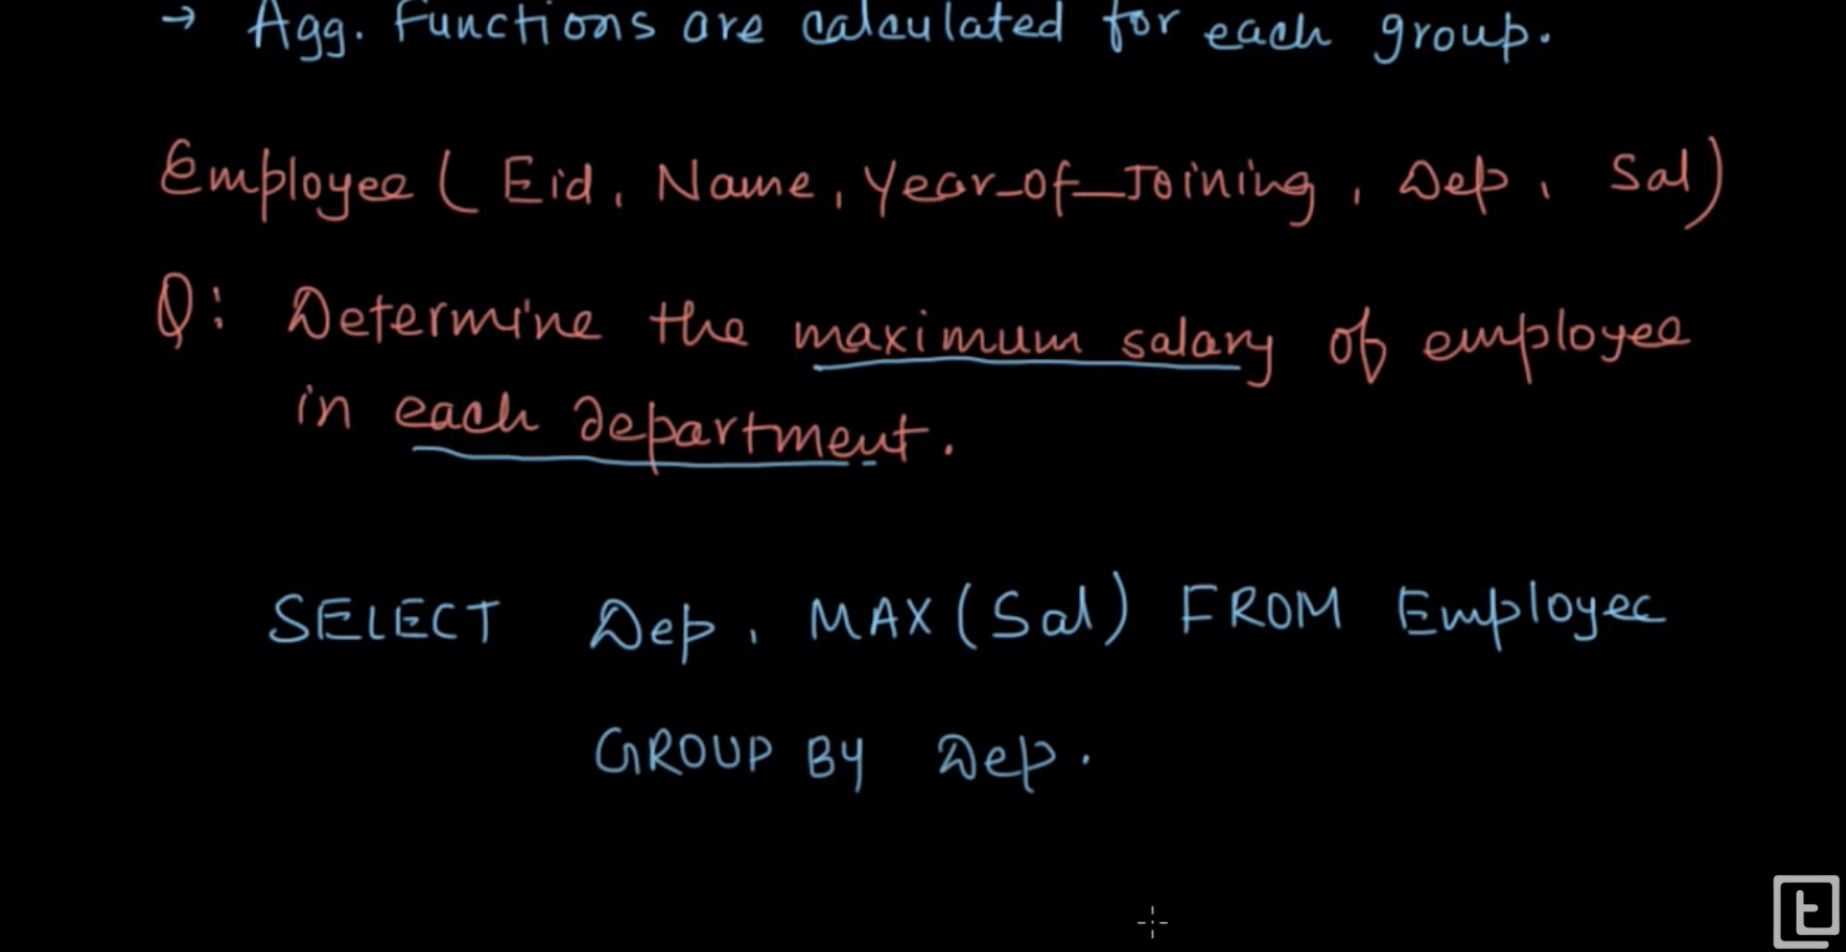 → Agg. Functions are calculated for each group.
Employee ( Eid, Name, Year_of_Joining, Dep, Sal)
Q: Determine the maximum salary of employee
in each department.
SELECT Dep, MAX(Sal) FROM Employee
GROUP BY Dep.
t